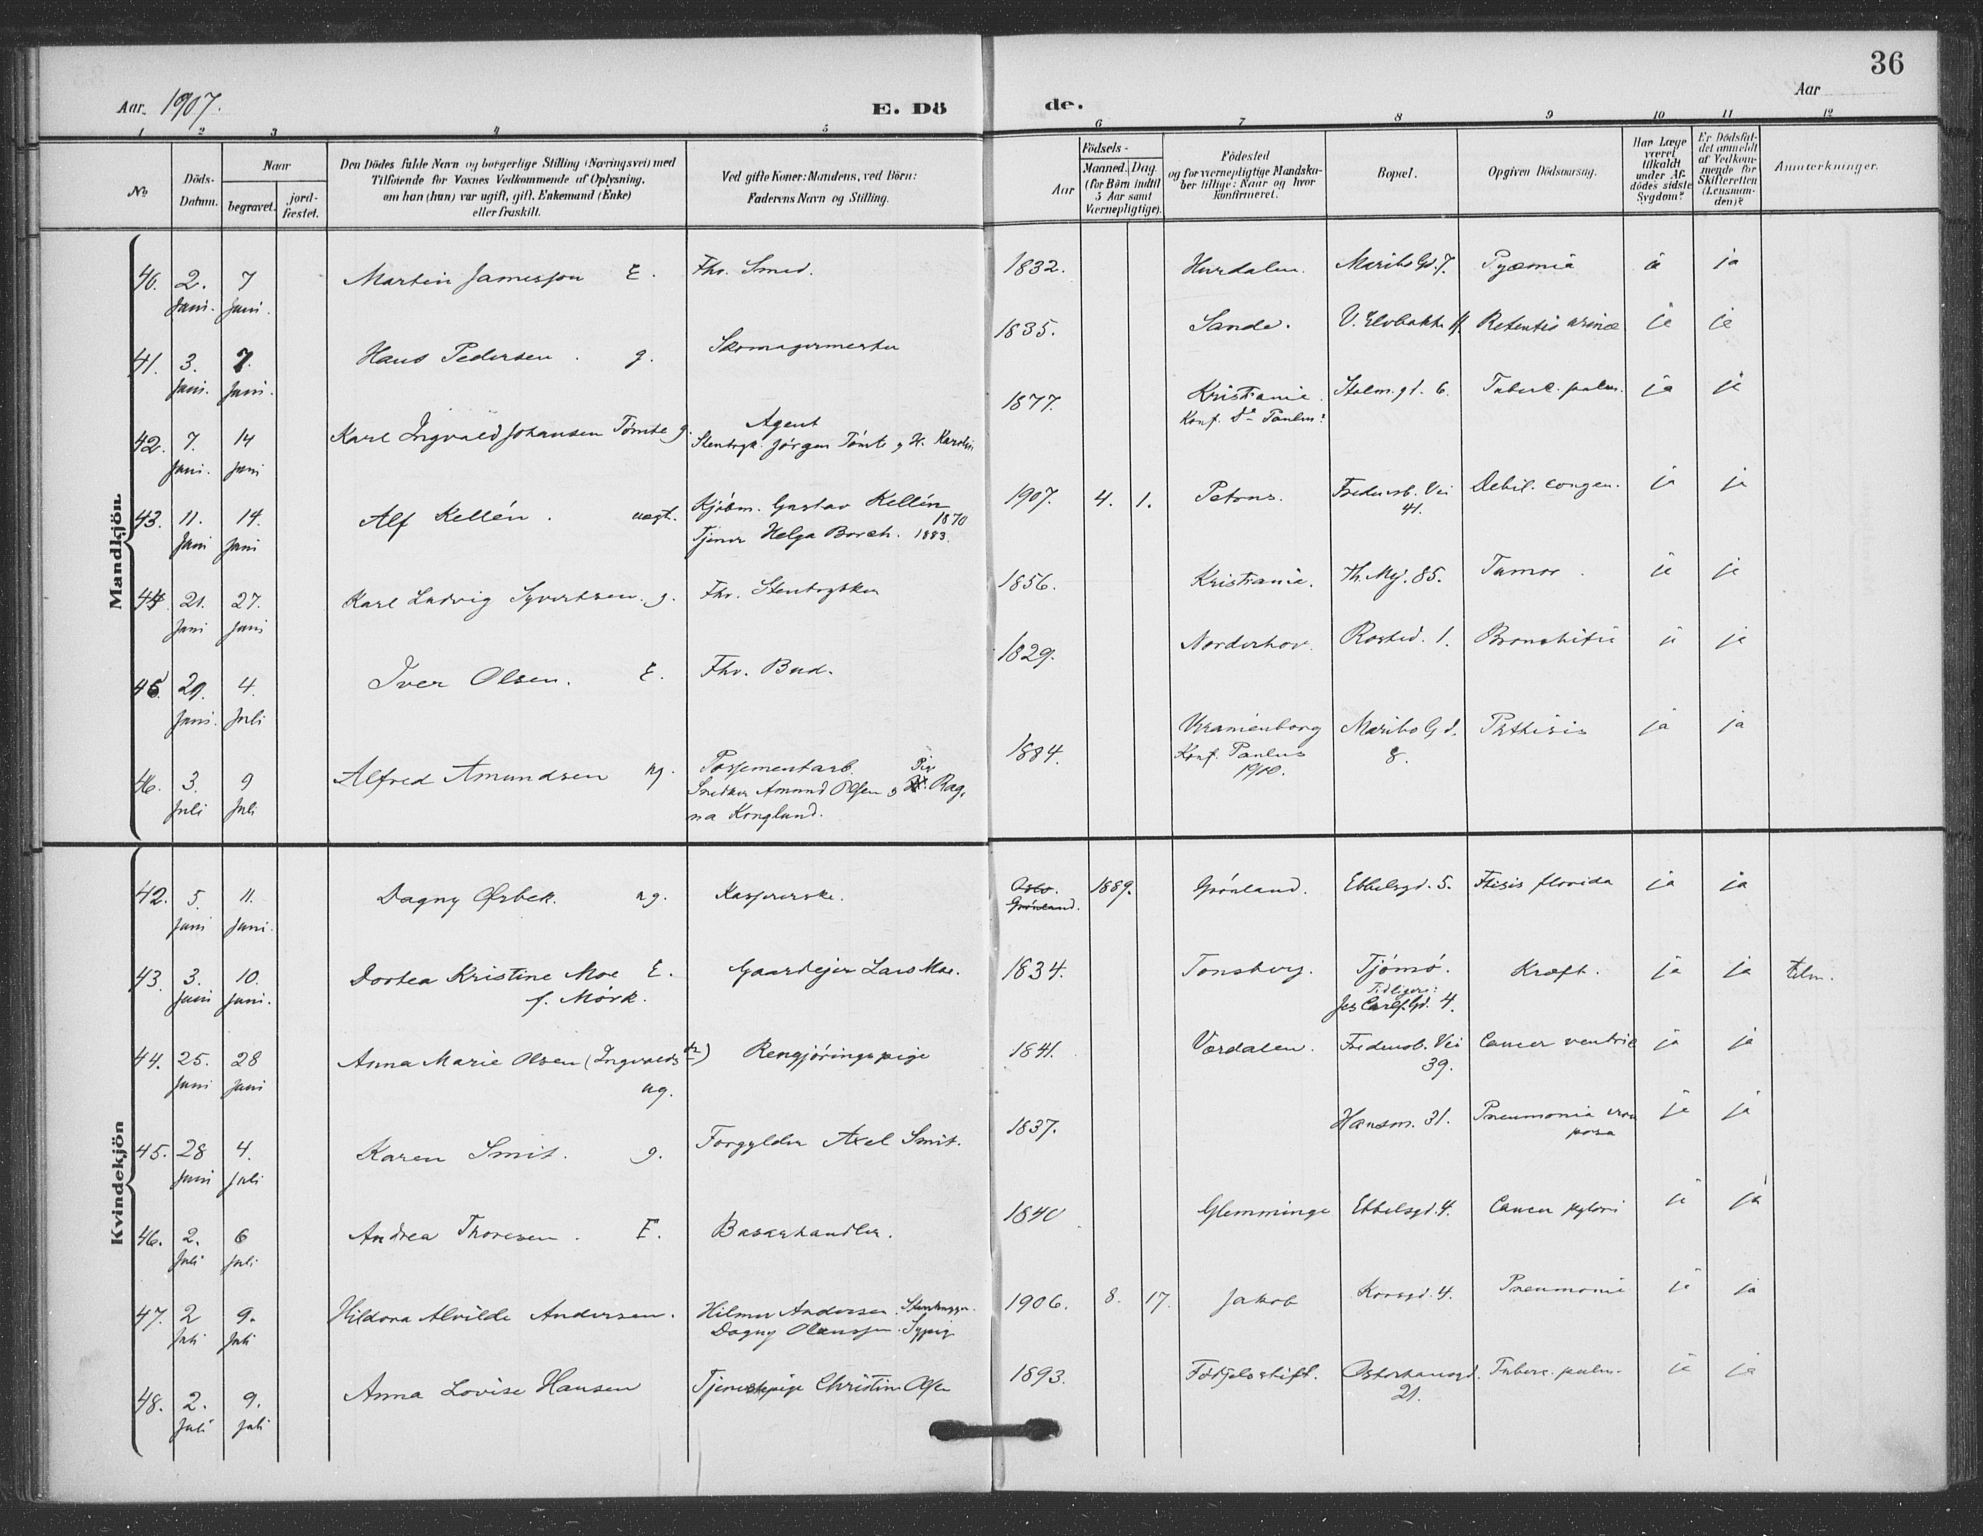 36
Aar 1907. E. Dö de. Aar
1 2 3 4 5 6 7 8 9 10 11 12
No
Döds-Datum.
Naar
begravet. jord-fæstet.
Den Dödes fulde Navn og borgerlige Stilling (Næringsvei) med
Tilföiende for Voxnes Vedkommende af Oplysning,
om han (hun) var ugift, gift, Enkemand (Enke)
eller fraskilt.
Ved gifte Koner: Mandens, ved Börn:
Faderens Navn og Stilling.
Födsels-
Aar Maaned. Dag.
(for Börn indtil
5 Aar samt
Værnepligtige).
Födested
og for værnepligtige Mandska-
ber tillige: Naar og hvor
konfirmeret.
Bopæl.
Opgiven Dödsaarsag.
Har Læge
været
tilkaldt
under Af-
dödes sidste
Sygdom?
Er Dödsfal-
det anmeldt
af Vedkom-
mende for
Skifteretten
(Lensman-
den)?
Anmærkninger.
Mandkjön
40. 2. Juni. 7 Juni. Martin Jamesson E. Fhv. Smed. 1832. Hurdalen. Maribogd. 7. Pyæmia ja ja
41. 3. Juni. 7. Juni. Hans Pedersen. g. Skomagermester 1835. Sande. V. Elvbakke Retentio urinæ ja ja
42. 7. Juni. 14 Juni Karl Ingvald Johansen Tømte g. Agent
Stenhugk. Jörgen Tömte og H. Karoline 1877. Kristiania. Holm.gd. 6. Tuberc. pulm. ja ja
Konf. Paulus
43. 11. Juni 14. Juni Alf Kellén. uægt. Kjöbm. Gustav Kellén 1870
Tjener Helga Borch. 1883. 1907. 4. 1. Petrus. Fredensb. Vei 41. Debil. congen. ja ja
44. 21. Juni 27. Juni Karl Ludvig Syvertsen. g. Fhv. Stenbryder 1856. Kristiania. Th. Mej. 85. Tumor. ja ja
45 29. Juni. 4. Juli Iver Olsen. E. Fhv. Bud. 1829. Norderhov. Rosted. 1. Bronchitis ja ja
46. 3. Juli 9 Juli Alfred Amundsen ug. Possementarb.
Snedker Amund Olsen og Pige Rag-
na Konglund. 1884. Uranienborg Maribo Gd. 8. Phthisis ja ja
Konf. Paulus
1900.
Kvindekjön
42. 5. Juni 11. Juni. Dagny Ørbek. ug. Kassererske. Oslo. Grönland. 1889. Grönland. Ebbelsgd. 5. Ftisis florida ja ja
43. 3. Juni 10. Juni. Dortea Kristine Moe E.
f. Mörk. Gaardejer Lars Moe. 1834. Tonsberg. Tjömö. Kræft. ja ja
Tidligere:
Jes Carls.Gd. 4.
44. 25. Juni 28 Juni Anna Marie Olsen (Ingvaldsdr)
ug. Rengjöringspige 1841. Værdalen. Fredensb. Vei 39. Cancer ventric ja ja
45. 28 Juni 4. Juli Karen Smit. g. Forgylder Axel Smit. 1837. Hansm. 31. Pneumonia crouposa ja ja
46. 2. Juli 6 Juli Andrea Thoresen. E. Basarhandler. 1840 Glemminge Ebbelsgd. 4. Cancer pylori ja ja
47. 2 Juli 9. Juli Hildora Alvilde Andersen. Hilmer Andersen. Stenhugger.
Dagny Olaussen. Sypige 1906. 8. 17. Jakob Korsgd. 4. Pneumonia ja ja
48. 2. Juli 9. Juli Anna Lovise Hansen Tjenestepige Christine Olsen 1893. Födselsstift. Osterhausgd. 21. Tuberc. pulm. ja ja